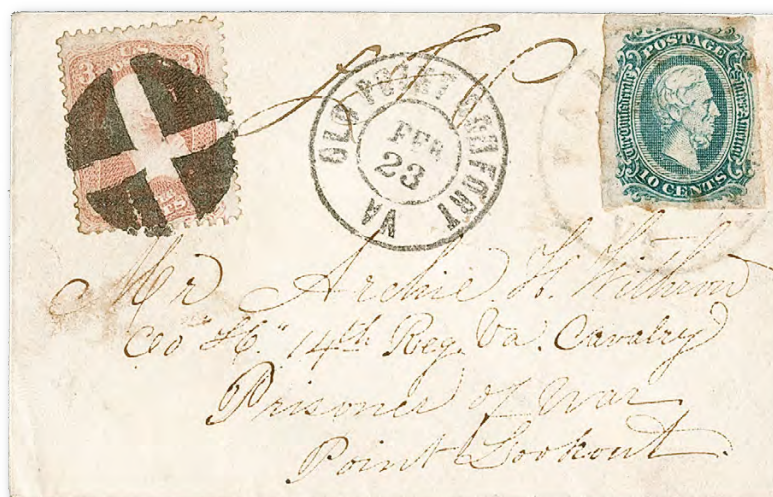 3 U.S. 3
OLD POINT COMFORT
FEB
23
VA
POSTAGE
The Confederate States of America
10 CENTS
Mr Archie W. Withrow
Co "H." 14th Reg. Va. Cavalry
Prisoner of War
Point Lookout.